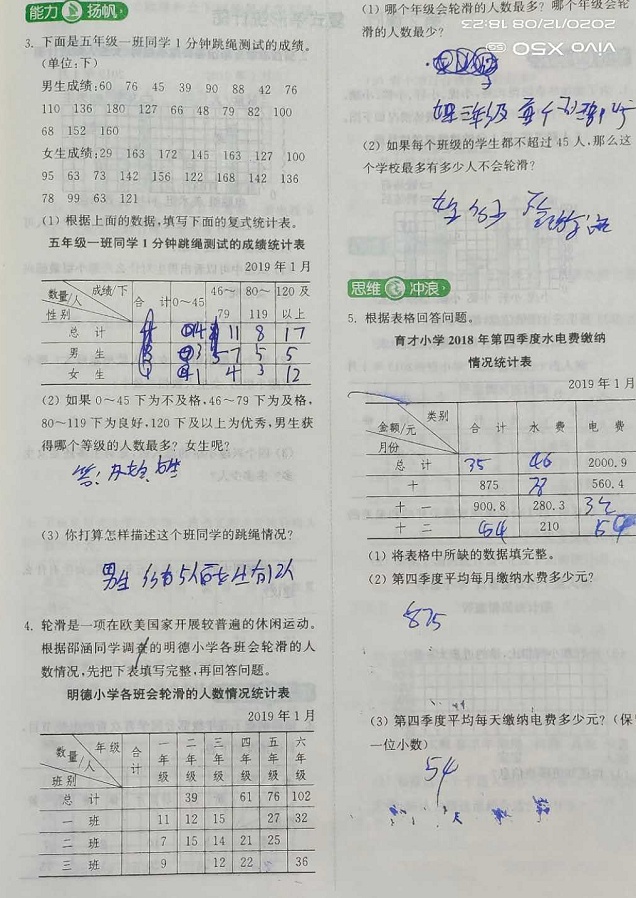 能力 扬帆
3. 下面是五年级一班同学1分钟跳绳测试的成绩。
(单位:下)
男生成绩:60 76 45 39 90 88 42 76
110 136 180 127 66 48 79 82 100
68 152 160
女生成绩:29 163 172 145 163 127 100
95 63 73 142 156 122 168 142 136
78 99 63 121
(1) 根据上面的数据,填写下面的复式统计表。
五年级一班同学1分钟跳绳测试的成绩统计表
2019年1月
数量/人 成绩/下 性别 合计 0~45 46~79 80~119 120及以上
总计 14 11 8 17
男生 3 7 5 5
女生 1 4 3 12
(2) 如果0~45下为不及格,46~79下为及格,
80~119下为良好,120下及以上为优秀,男生获
得哪个等级的人数最多?女生呢?
答:
(3) 你打算怎样描述这个班同学的跳绳情况?
男生
4. 轮滑是一项在欧美国家开展较普遍的休闲运动。
根据邵涵同学调查的明德小学各班会轮滑的人
数情况,先把下表填写完整,再回答问题。
明德小学各班会轮滑的人数情况统计表
2019年1月
数量/人 年级 班别 合计 一年级 二年级 三年级 四年级 五年级 六年级
总计 39 61 76 102
一班 11 12 15 27 32
二班 7 15 14 21 25
三班 9 12 22 36
(1) 哪个年级会轮滑的人数最多?哪个年级会轮
滑的人数最少?
(2) 如果每个班级的学生都不超过45人,那么这
个学校最多有多少人不会轮滑?
思维 冲浪
5. 根据表格回答问题。
育才小学2018年第四季度水电费缴纳
情况统计表
2019年1月
金额/元 类别 月份 合计 水费 电费
总计 35 46 2000.9
十 875 560.4
十一 900.8 280.3
十二 210
(1) 将表格中所缺的数据填完整。
(2) 第四季度平均每月缴纳水费多少元?
875
(3) 第四季度平均每天缴纳电费多少元?(保
一位小数)
54
vivo X50
2020/12/08 18:23